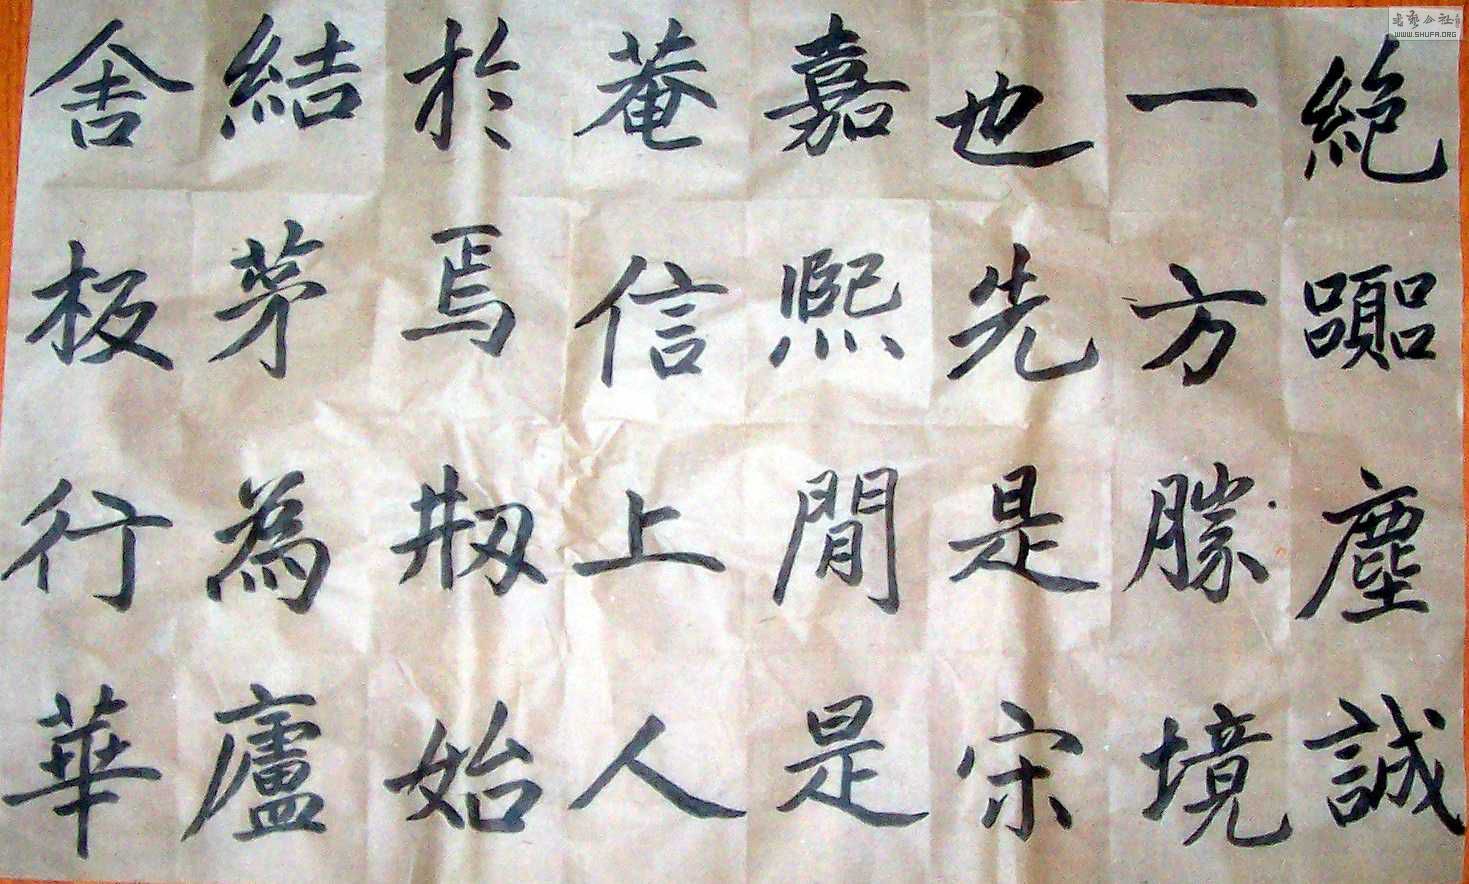 絕囂塵誠
一方勝境
也先是宋
嘉熙閒是
菴信上人
於焉剏始
結茅為廬
舍板行華
書藝公社
WWW.SHUFA.ORG